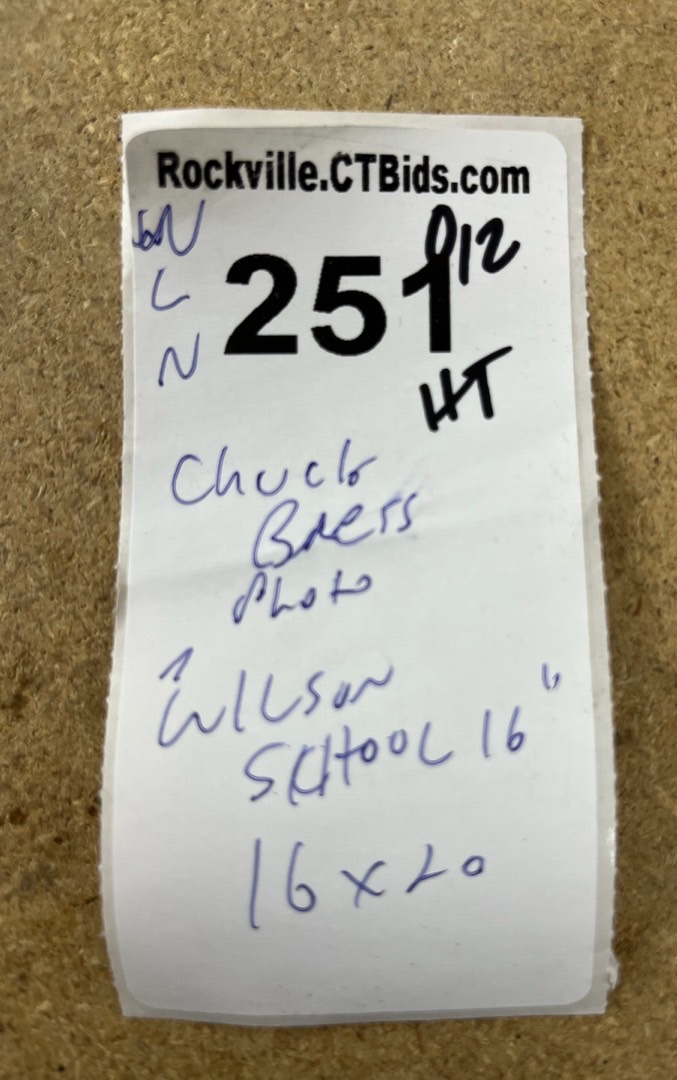 Rockville.CTBids.com
251
012
L
N
HT
Chuck
Bress
Photo
"WILSON
SCHOOL 16"
16 x 20